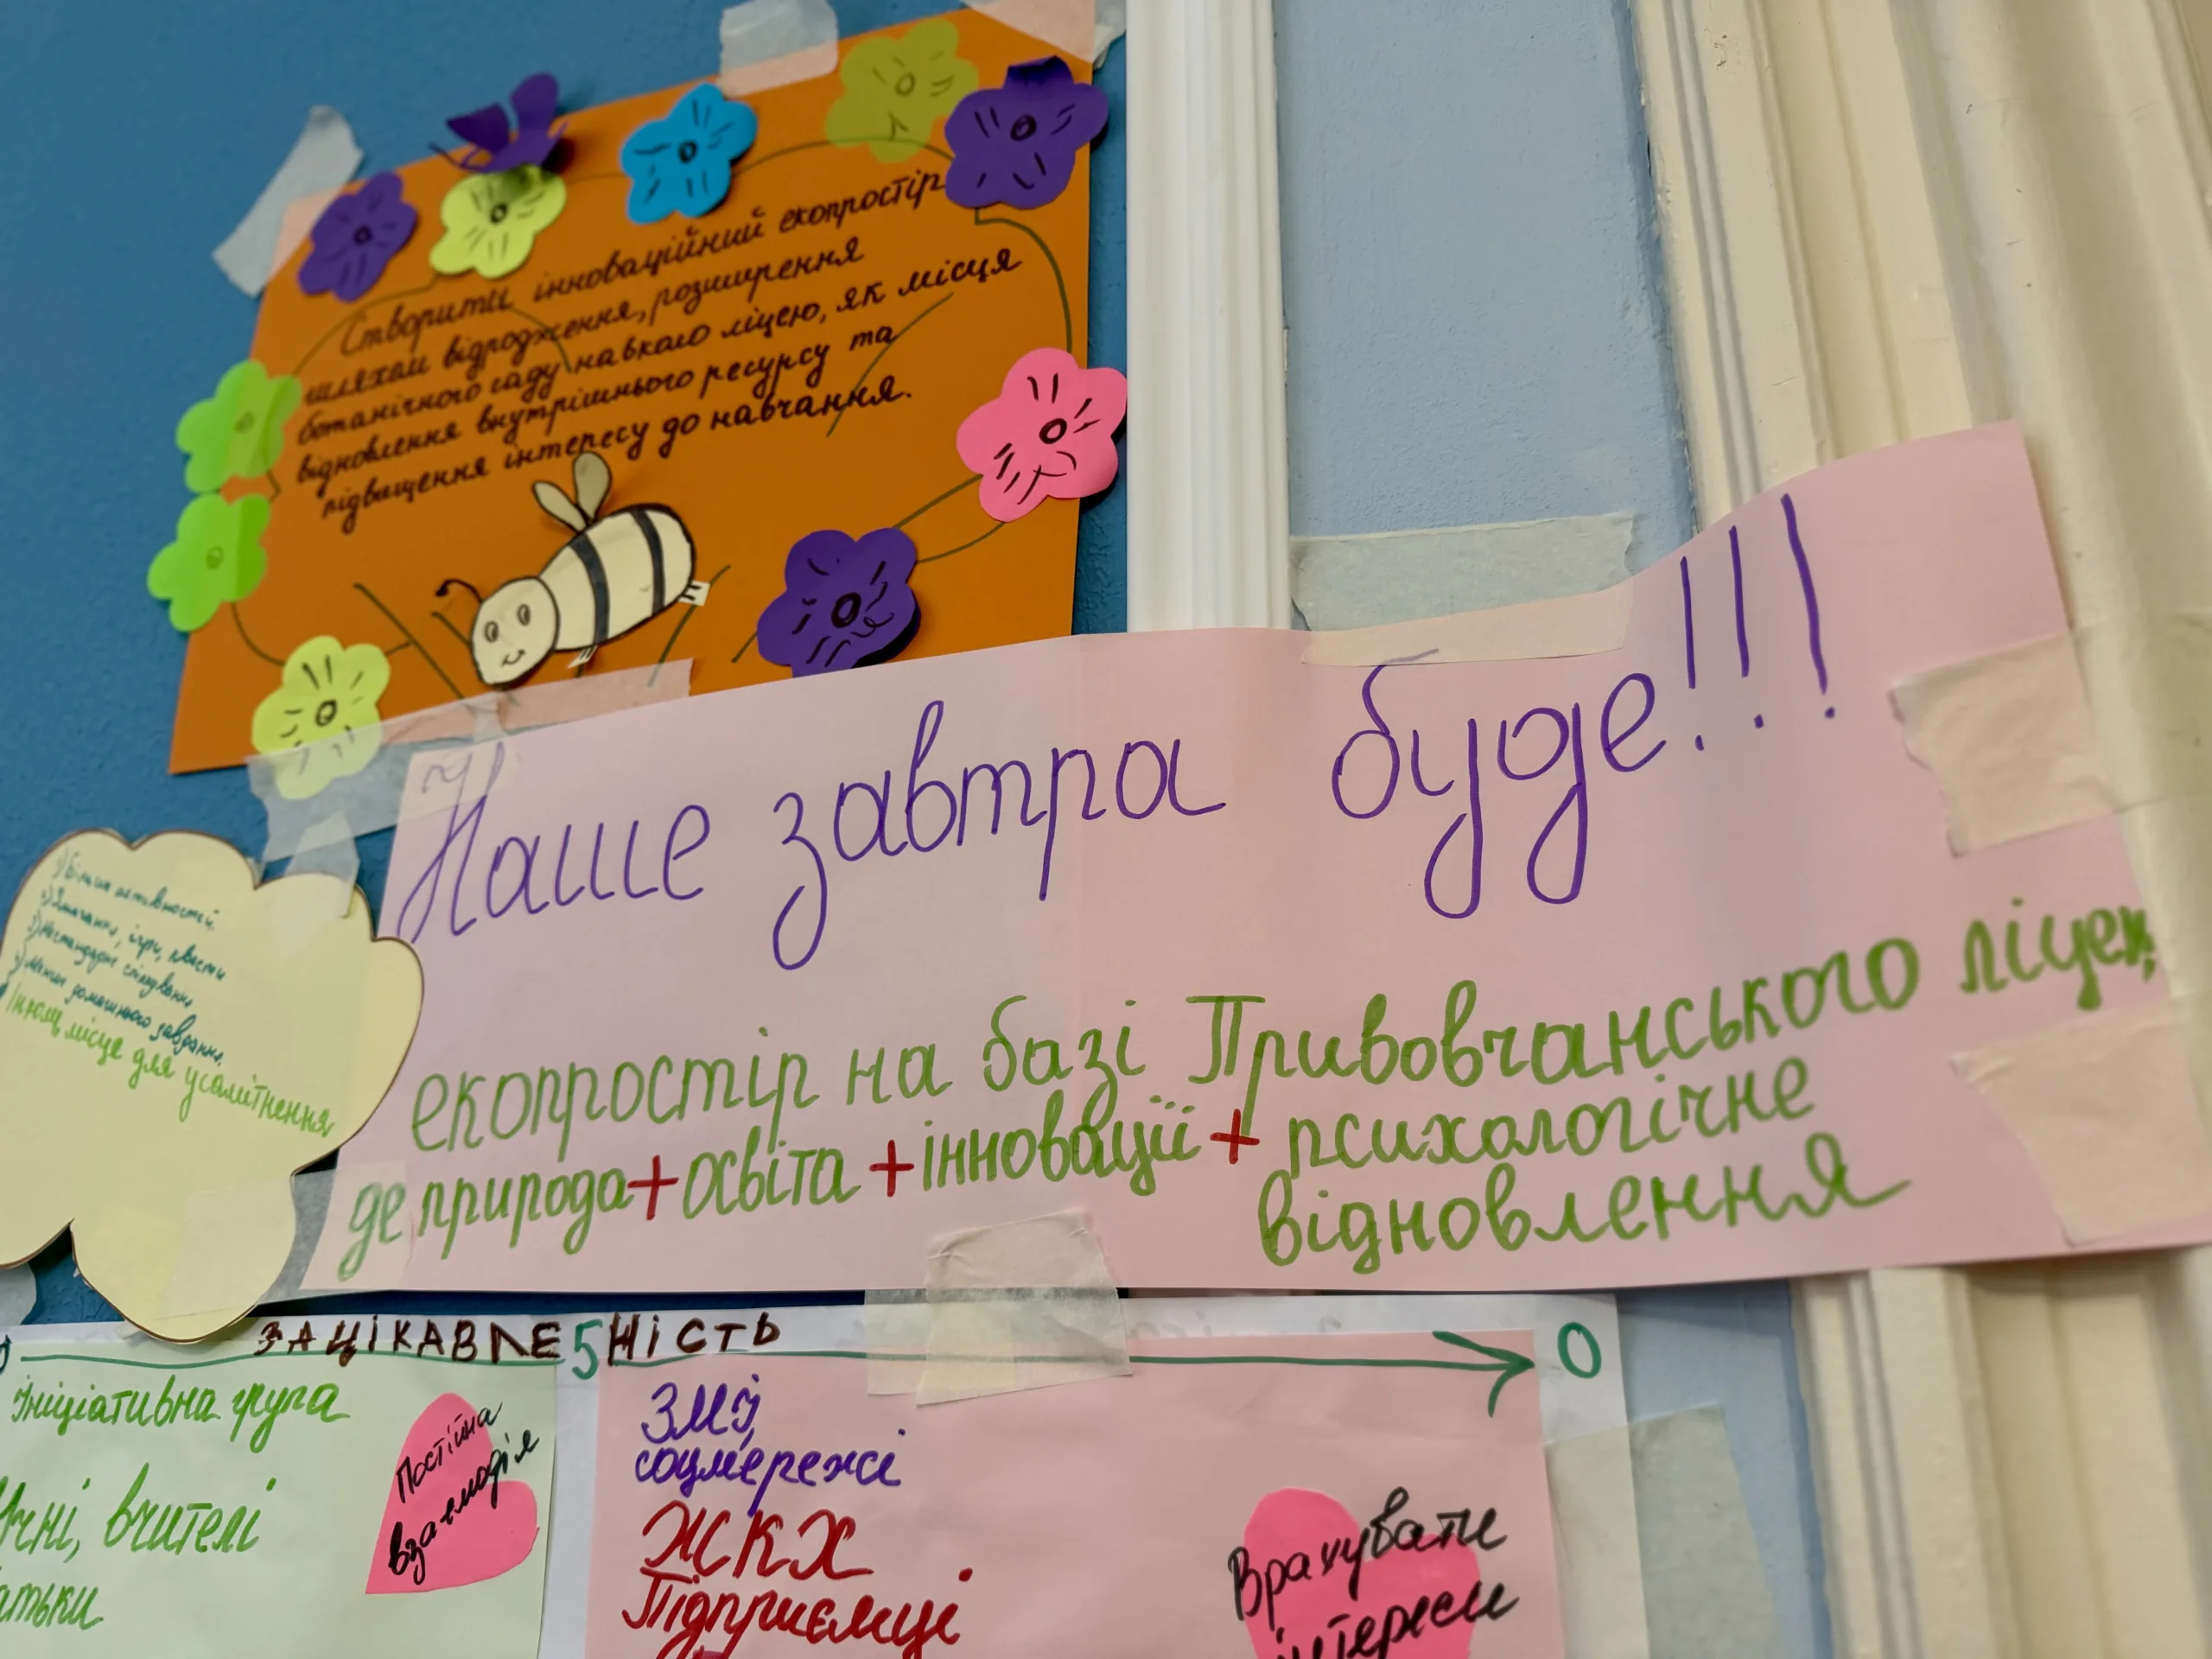 Створити інноваційний екопростір
шляхом відродження, розширення
ботанічного саду навколо ліцею, як місця
відновлення внутрішнього ресурсу та
підвищення інтересу до навчання.
Наше завтра буде!!!
екопростір на базі Привовчанського ліцею,
де природа+освіта+інновації+психологічне
відновлення
1) Більше активностей.
2) Змагання, ігри, квести
3) Нестандартне спілкування
4) Менше домашнього завдання.
місце для усамітнення
ЗАЦІКАВЛЕ5НІСТЬ
0
Ініціативна група
вчителі
Постійна
взаємодія
ЗМІ,
соцмережі
ЖКХ
Підприємці
Врахувати
інтереси